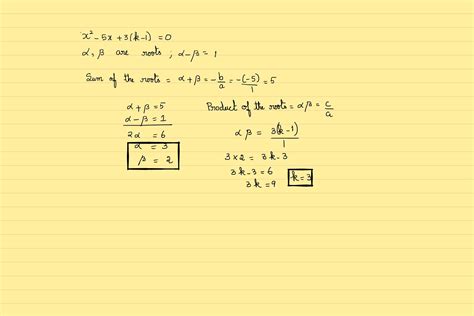 x² - 5x + 3(k-1) = 0
α, β are roots ; α - β = 1
Sum of the roots = α + β = -b/a = -(-5)/1 = 5
α + β = 5
α - β = 1
2α = 6
α = 3
β = 2
Product of the roots = αβ = c/a
αβ = 3(k-1)/1
3×2 = 3k-3
3k-3 = 6
3k = 9
k = 3